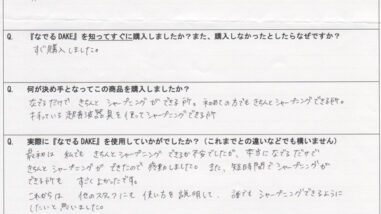 Q. 『なでるDAKE』を知ってすぐに購入しましたか？また、購入しなかったとしたらなぜですか？
すぐ購入しました。
Q. 何が決め手となってこの商品を購入しましたか？
なでるだけで きちんと シャープニングができる所。初めての方でもきちんとシャープニングできる所。
持っている 超音波器具を使ってシャープニング
Q. 実際に『なでるDAKE』を使用していかがでしたか？（これまでとの違いなどでも構いません）
最初は 私でも きちんとシャープニング できるか不安でしたが、本当になでるだけで
きちんと シャープニングができたので 感動しました。また、短時間でシャープニングが
できる所も すごくよかったです。
これからは 他のスタッフにも 使い方を説明して、誰でもシャープニングできるように
したいと思いました。